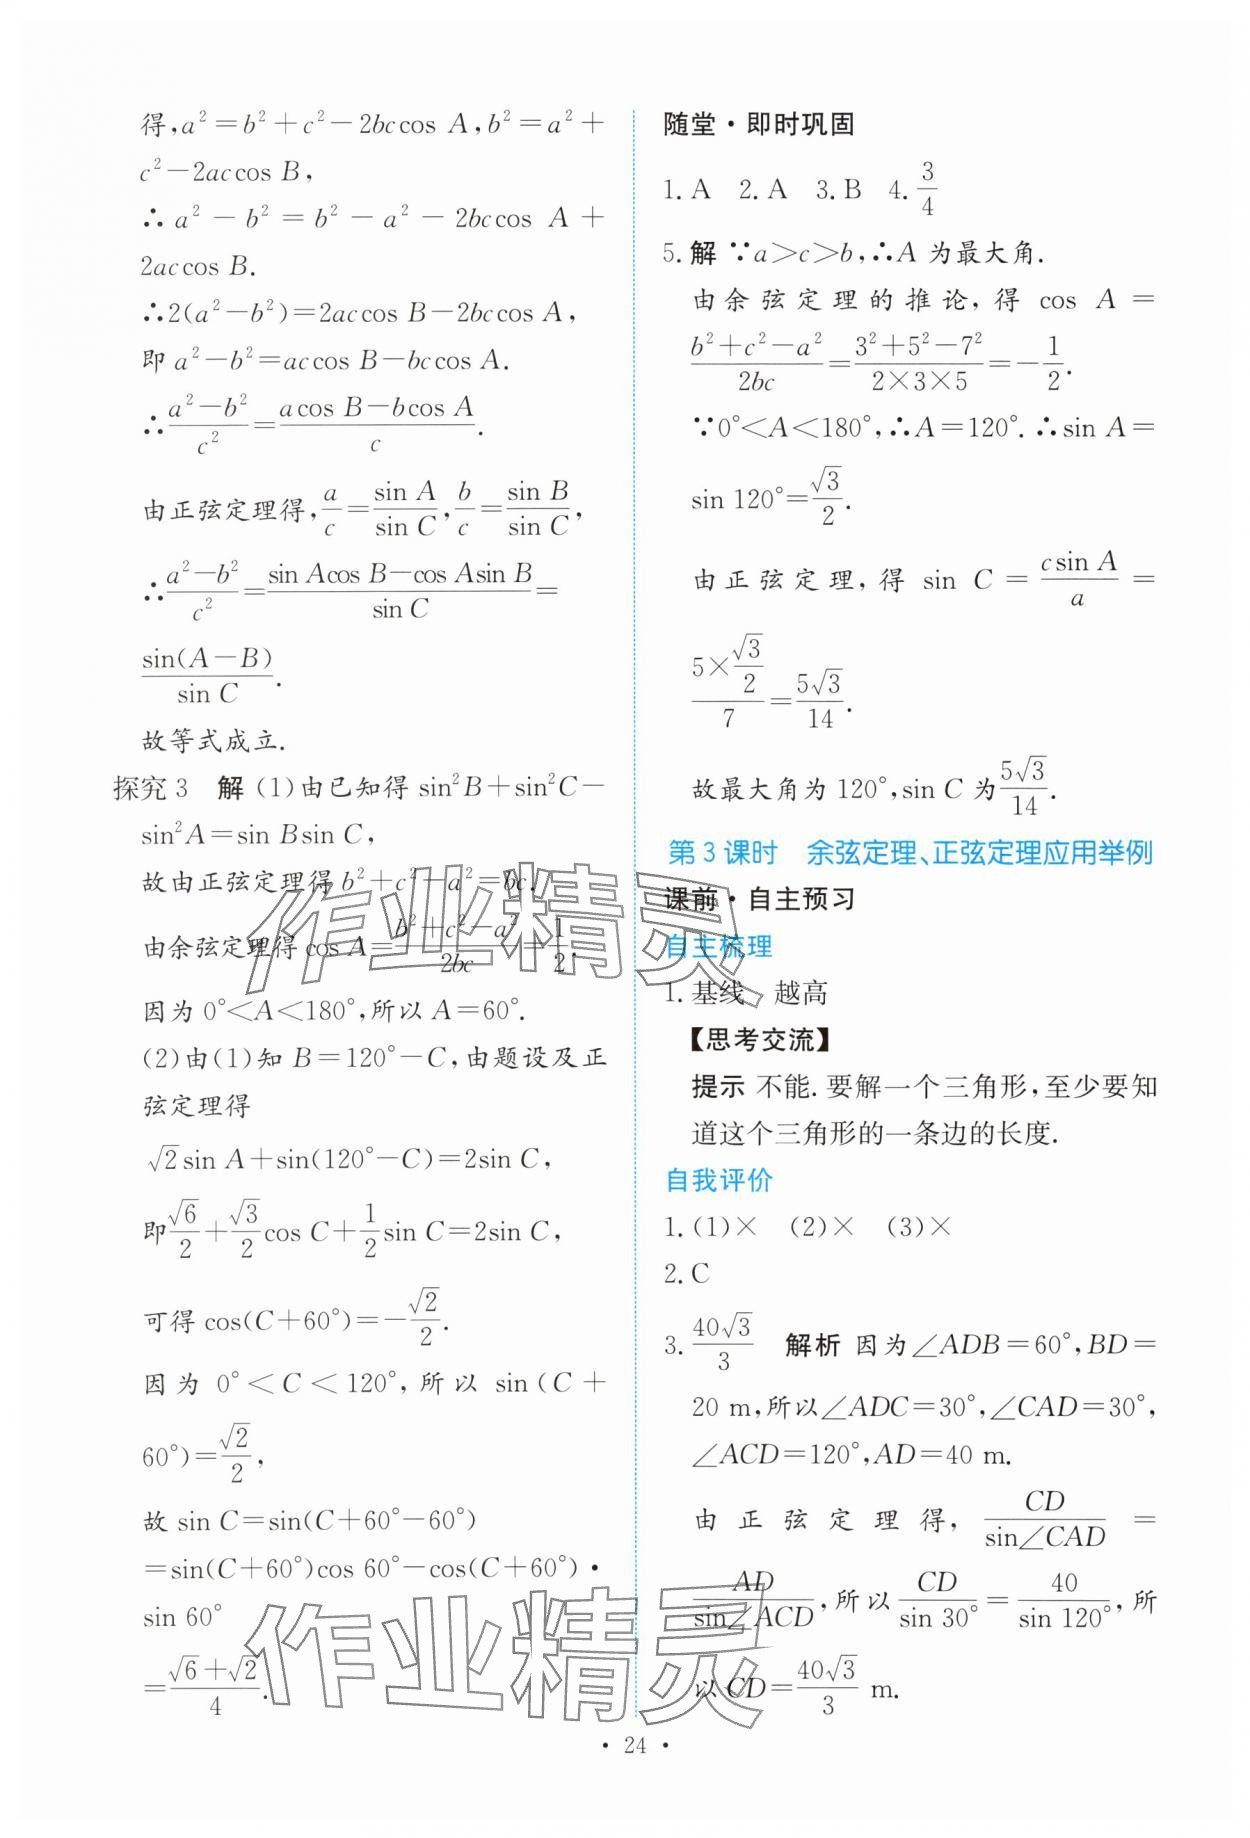 得,a²=b²+c²-2bccos A,b²=a²+
c²-2accos B,
∴a²-b²=b²-a²-2bccos A+
2accos B.
∴2(a²-b²)=2accos B-2bccos A,
即 a²-b²=accos B-bccos A.
∴(a²-b²)/c²=(acos B-bcos A)/c.
由正弦定理得,a/c=sin A/sin C,b/c=sin B/sin C,
∴(a²-b²)/c²=(sin Acos B-cos Asin B)/sin C=
sin(A-B)/sin C.
故等式成立.
探究3 解 (1)由已知得 sin²B+sin²C-
sin²A=sin Bsin C,
故由正弦定理得 b²+c²-a²=bc.
由余弦定理得 cos A=(b²+c²-a²)/2bc=1/2.
因为 0°<A<180°,所以 A=60°.
(2)由(1)知 B=120°-C,由题设及正
弦定理得
√2sin A+sin(120°-C)=2sin C,
即√6/2+√3/2cos C+1/2sin C=2sin C,
可得 cos(C+60°)=-√2/2.
因为 0°<C<120°,所以 sin(C+
60°)=√2/2,
故 sin C=sin(C+60°-60°)
=sin(C+60°)cos 60°-cos(C+60°)·
sin 60°
=(√6+√2)/4.
随堂·即时巩固
1.A 2.A 3.B 4.3/4
5.解 ∵a>c>b,∴A 为最大角.
由余弦定理的推论,得 cos A=
(b²+c²-a²)/2bc=(3²+5²-7²)/(2×3×5)=-1/2.
∵0°<A<180°,∴A=120°.∴sin A=
sin 120°=√3/2.
由正弦定理,得 sin C=csin A/a=
(5×√3/2)/7=5√3/14.
故最大角为 120°,sin C 为5√3/14.
第3课时 余弦定理、正弦定理应用举例
课前·自主预习
自主梳理
1.基线 越高
【思考交流】
提示 不能.要解一个三角形,至少要知
道这个三角形的一条边的长度.
自我评价
1.(1)× (2)× (3)×
2.C
3.40√3/3 解析 因为∠ADB=60°,BD=
20 m,所以∠ADC=30°,∠CAD=30°,
∠ACD=120°,AD=40 m.
由正弦定理得,CD/sin∠CAD=
AD/sin∠ACD,所以CD/sin 30°=40/sin 120°,所
以 CD=40√3/3 m.
作业精灵
作业精灵
·24·